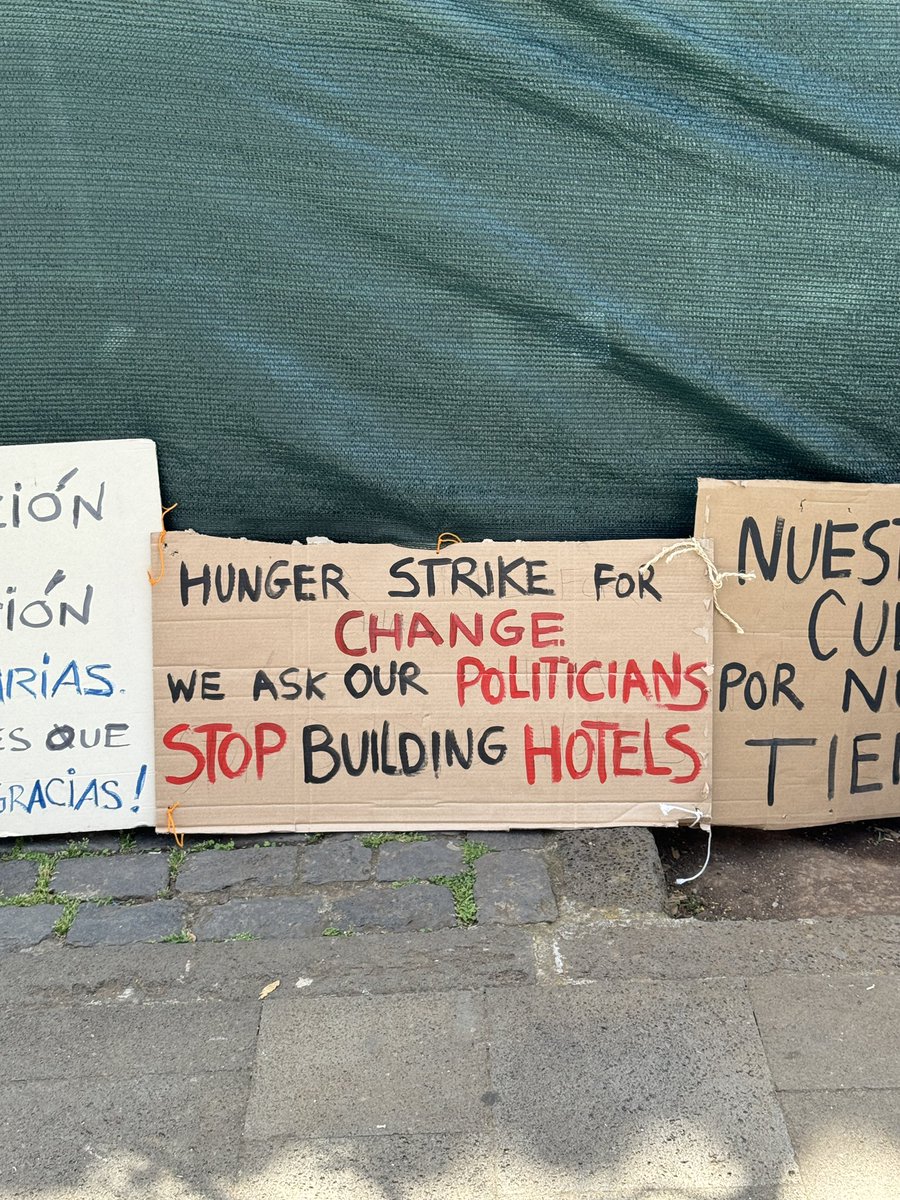 CIÓN
CIÓN
ARIAS.
ES QUE
GRACIAS!
HUNGER STRIKE FOR
CHANGE.
WE ASK OUR POLITICIANS
STOP BUILDING HOTELS
NUEST
CUL
POR NU
TIER